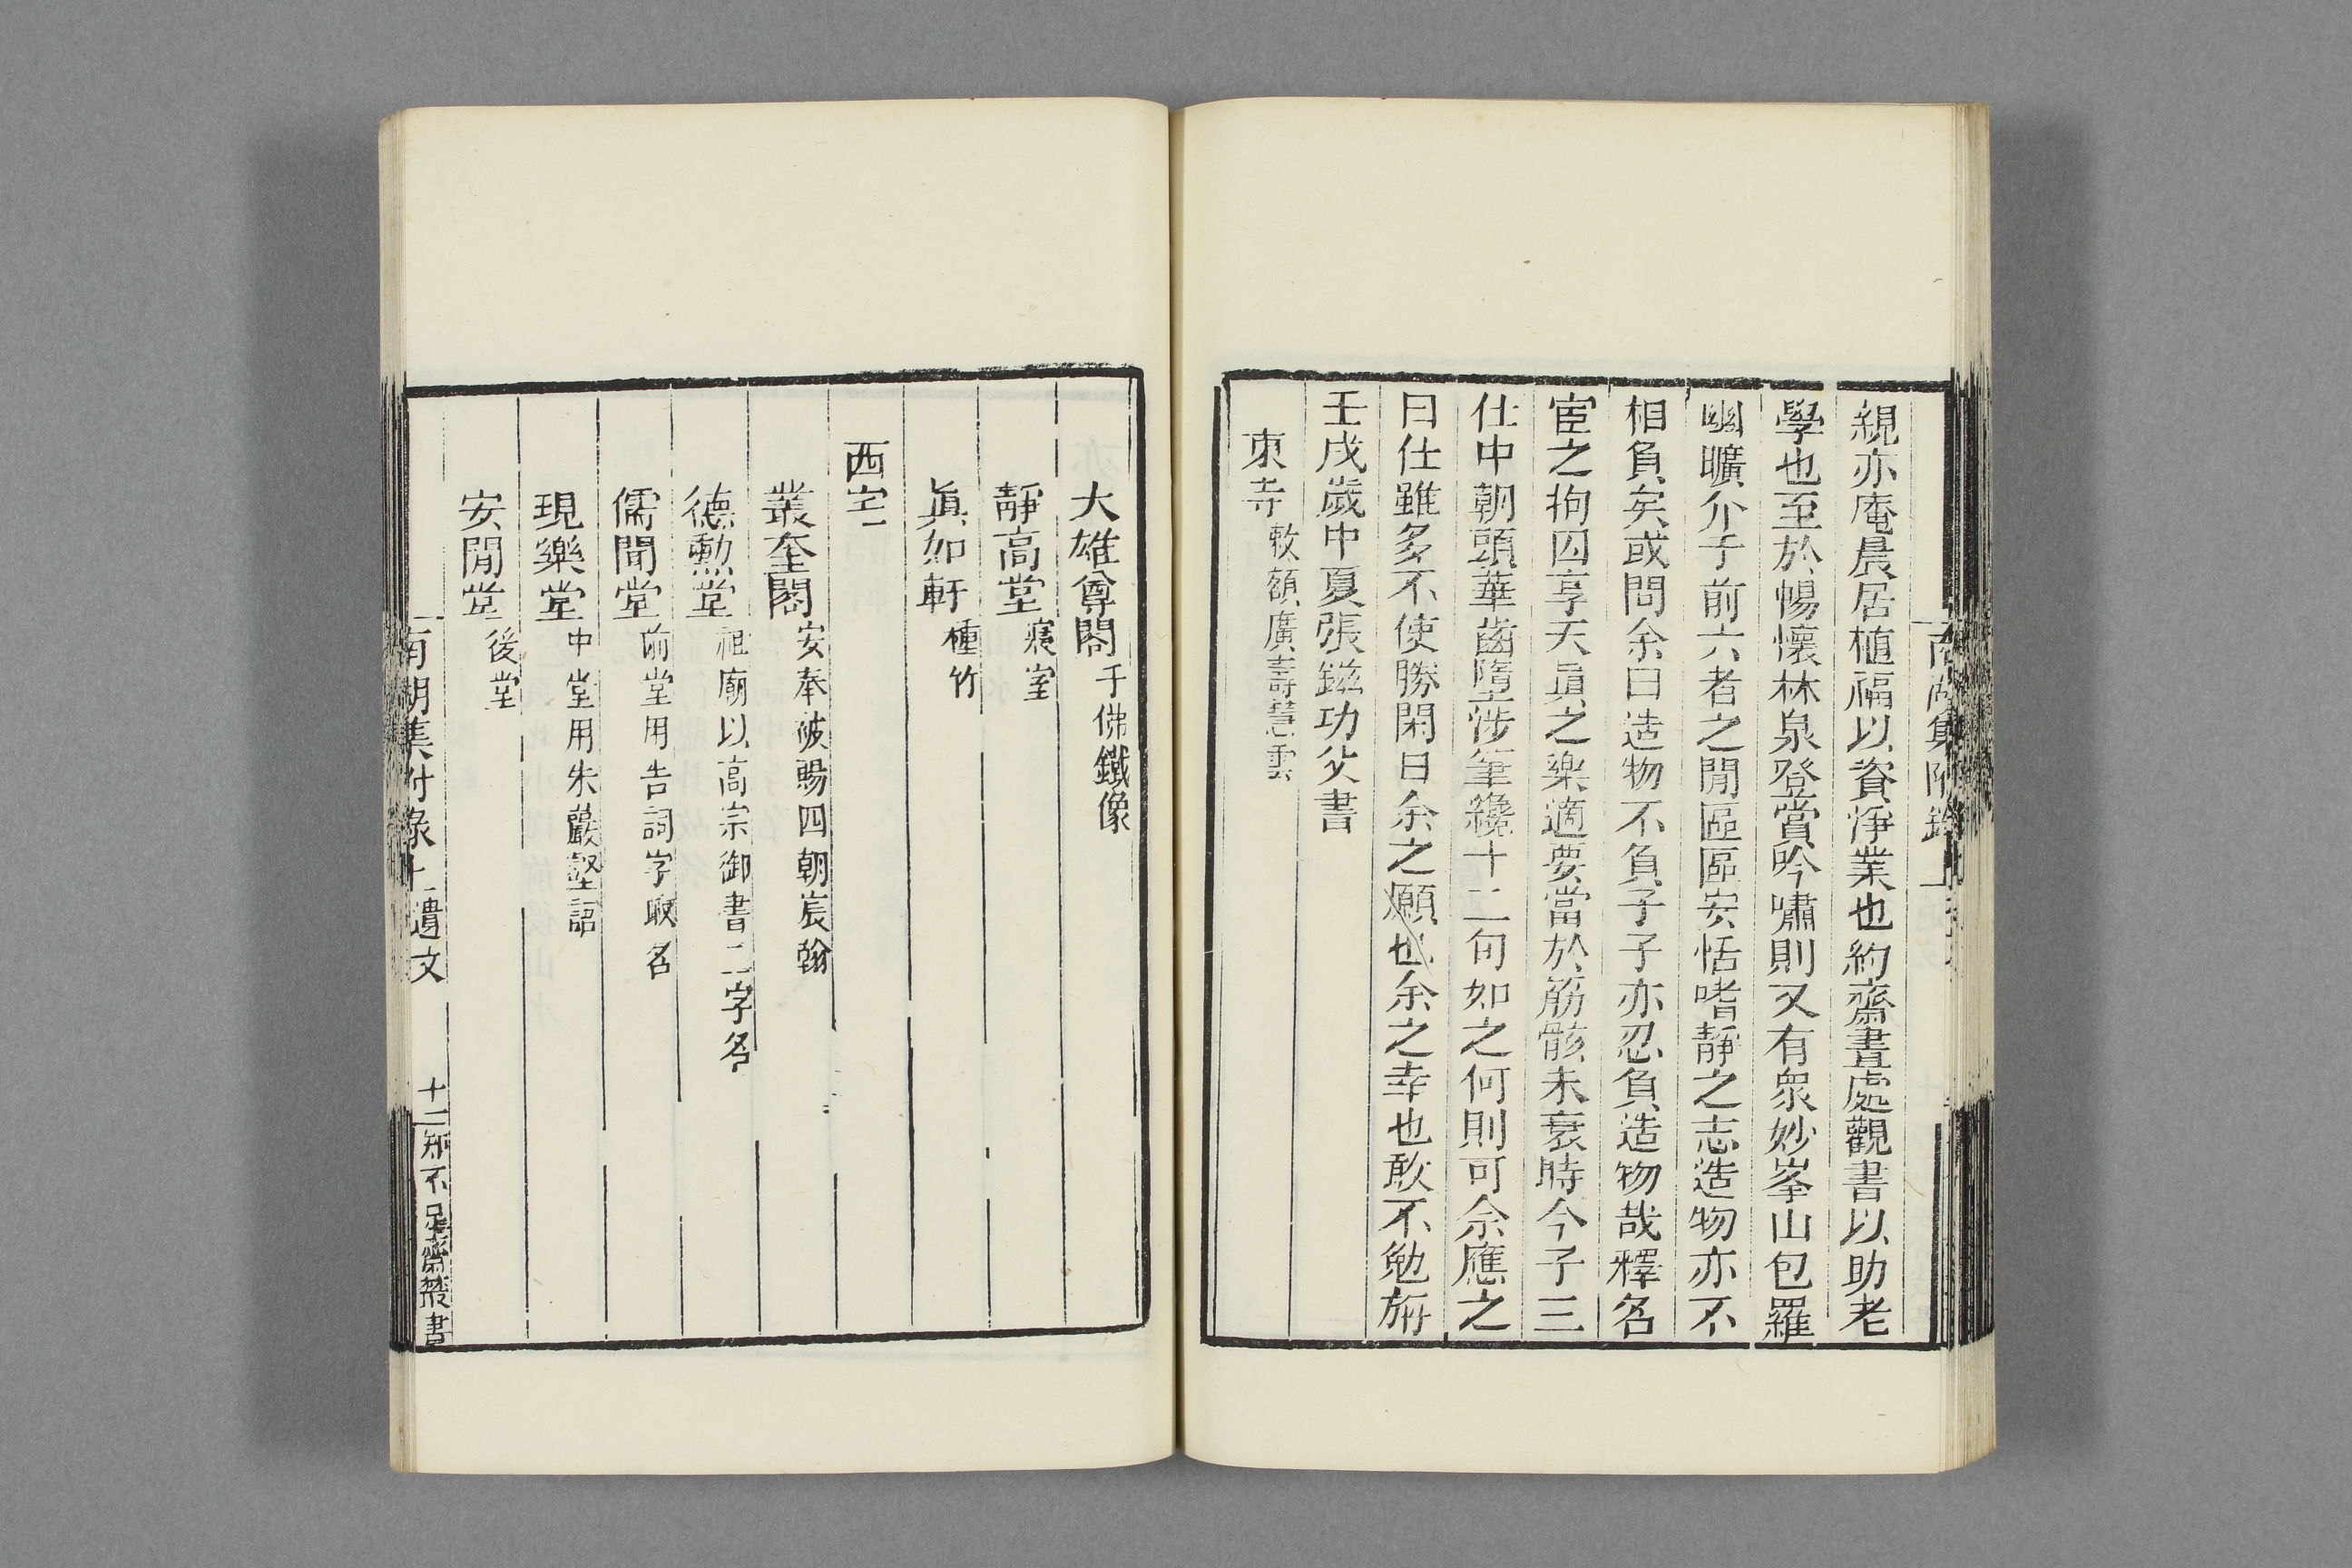 親亦庵晨居植福以資淨業也約齋晝處觀書以助老
學也至於暢懷林泉登賞吟嘯則又有衆妙峯山包羅
幽曠介于前六者之閒區區安恬嗜靜之志造物亦不
相負矣或問余曰造物不負子子亦忍負造物哉釋名
宦之拘囚享天眞之樂適要當於筋骸未衰時今子三
仕中朝頭華齒墮涉筆纔十二旬如之何則可余應之
曰仕雖多不使勝閑日余之願也余之幸也敢不勉旃
壬戌歲中夏張鎡功父書
東寺 敕額廣壽慧雲
大雄尊閣 千佛鐵像
靜高堂 寢室
眞如軒 種竹
西宅
叢奎閣 安奉被賜四朝宸翰
德勳堂 祖廟以高宗御書二字名
儒聞堂 前堂用告詞字取名
現樂堂 中堂用朱巖壑語
安閒堂 後堂
南湖集付錄上遺文 十二 知不足齋叢書